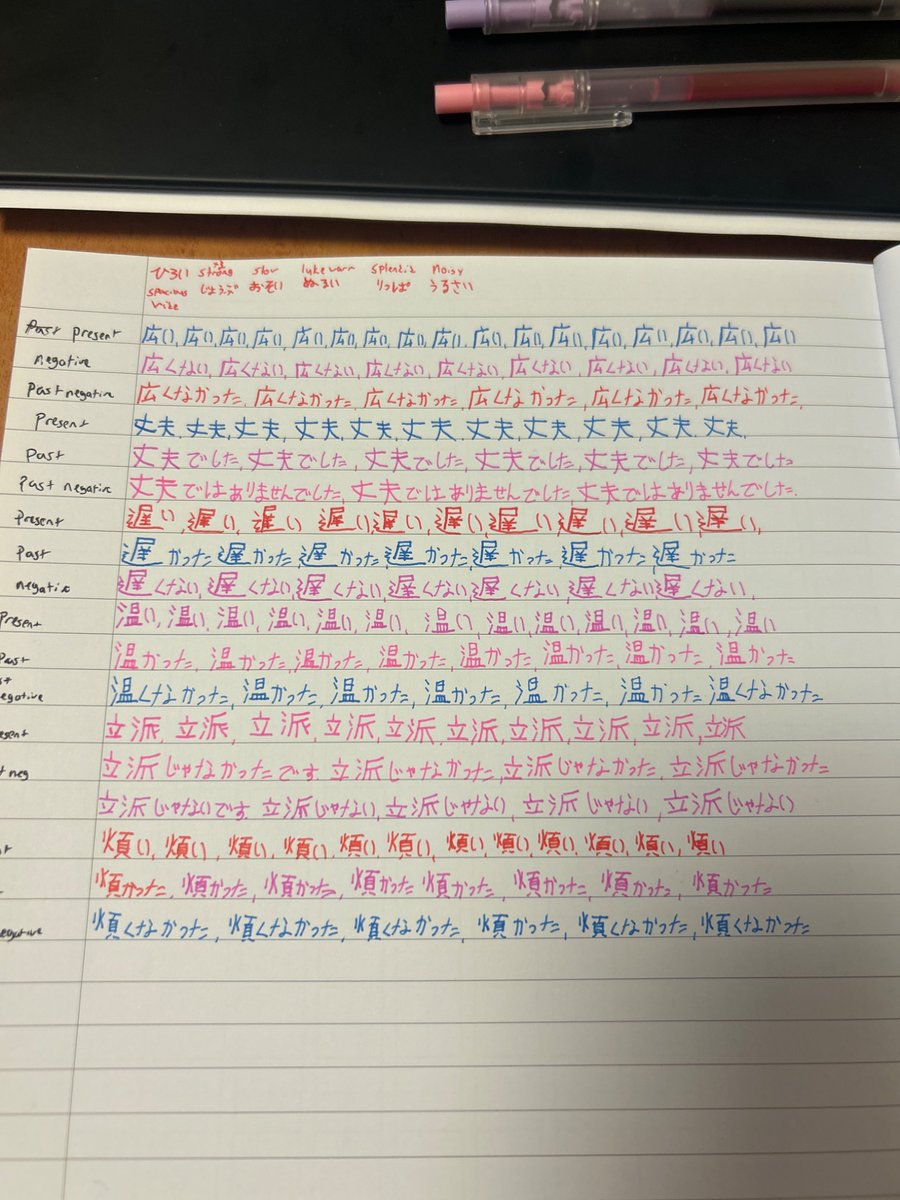 ひろい strong slow lukewarm splendid noisy
spacious じょうぶ おそい ぬるい りっぱ うるさい
wide
present 広い, 広い, 広い, 広い, 広い, 広い, 広い, 広い, 広い, 広い, 広い, 広い, 広い, 広い, 広い, 広い, 広い
negative 広くない, 広くない, 広くない, 広くない, 広くない, 広くない, 広くない, 広くない, 広くない
Past negative 広くなかった, 広くなかった, 広くなかった, 広くなかった, 広くなかった, 広くなかった,
Present 丈夫, 丈夫, 丈夫, 丈夫, 丈夫, 丈夫, 丈夫, 丈夫, 丈夫, 丈夫, 丈夫,
Past 丈夫でした, 丈夫でした, 丈夫でした, 丈夫でした, 丈夫でした, 丈夫でした
Past negative 丈夫ではありませんでした, 丈夫ではありませんでした, 丈夫ではありませんでした.
Present 遅い, 遅い, 遅い, 遅い, 遅い, 遅い, 遅い, 遅い, 遅い, 遅い,
Past 遅かった, 遅かった, 遅かった, 遅かった, 遅かった, 遅かった, 遅かった
negative 遅くない, 遅くない, 遅くない, 遅くない, 遅くない, 遅くない, 遅くない,
Present 温い, 温い, 温い, 温い, 温い, 温い, 温い, 温い, 温い, 温い, 温い, 温い, 温い
Past 温かった, 温かった, 温かった, 温かった, 温かった, 温かった, 温かった, 温かった
negative 温くなかった, 温かった, 温かった, 温かった, 温かった, 温かった, 温くなかった
esent 立派, 立派, 立派, 立派, 立派, 立派, 立派, 立派, 立派, 立派
neg 立派じゃなかったです, 立派じゃなかった, 立派じゃなかった, 立派じゃなかった
立派じゃないです, 立派じゃない, 立派じゃない, 立派じゃない, 立派じゃない
煩い, 煩い, 煩い, 煩い, 煩い, 煩い, 煩い, 煩い, 煩い, 煩い, 煩い, 煩い
煩かった, 煩かった, 煩かった, 煩かった, 煩かった, 煩かった, 煩かった, 煩かった
egative 煩くなかった, 煩くなかった, 煩くなかった, 煩かった, 煩くなかった, 煩くなかった